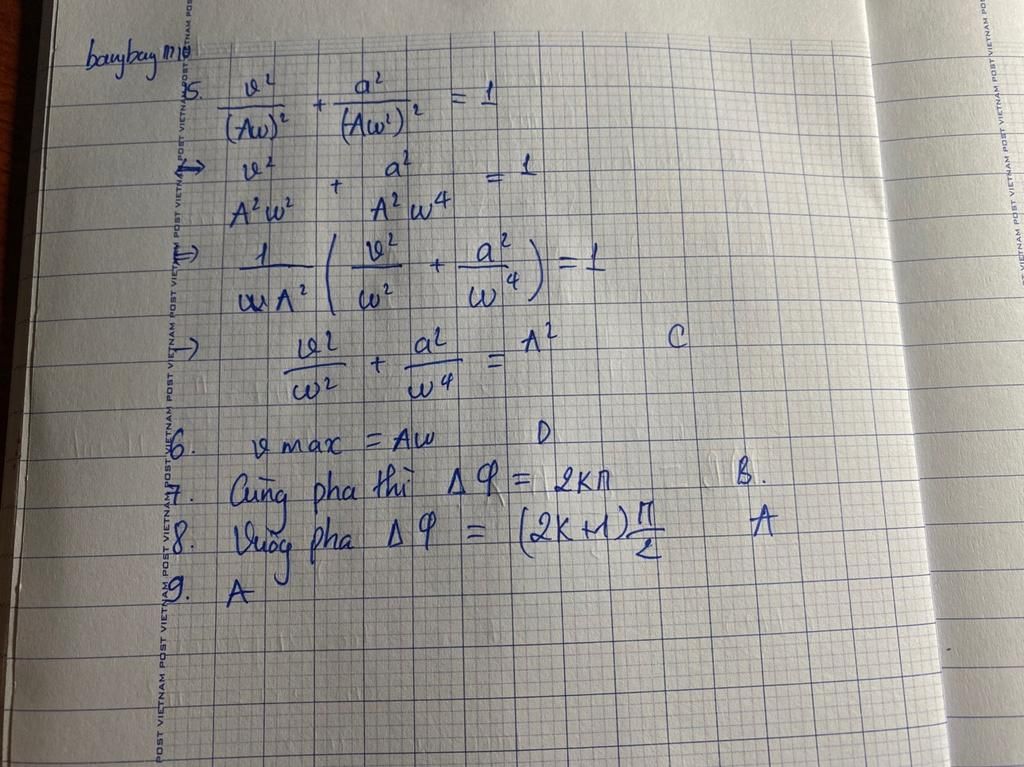 baybay me
5. v²/(Aω)² + a²/(Aω²)² = 1
⇒ v²/A²ω² + a²/A²ω⁴ = 1
⇒ 1/A² (v²/ω² + a²/ω⁴) = 1
→ v²/ω² + a²/ω⁴ = A² C
6. v max = Aω D
7. Cùng pha thì Δφ = 2kπ B.
8. Vuôg pha Δφ = (2k+1)π/2 A
9. A
POST VIETNAM POST VIETNAM POST VIETNAM POST VIETNAM POST VIETNAM POST VIETNAM POST VIETNAM
POST VIETNAM POST VIETNAM